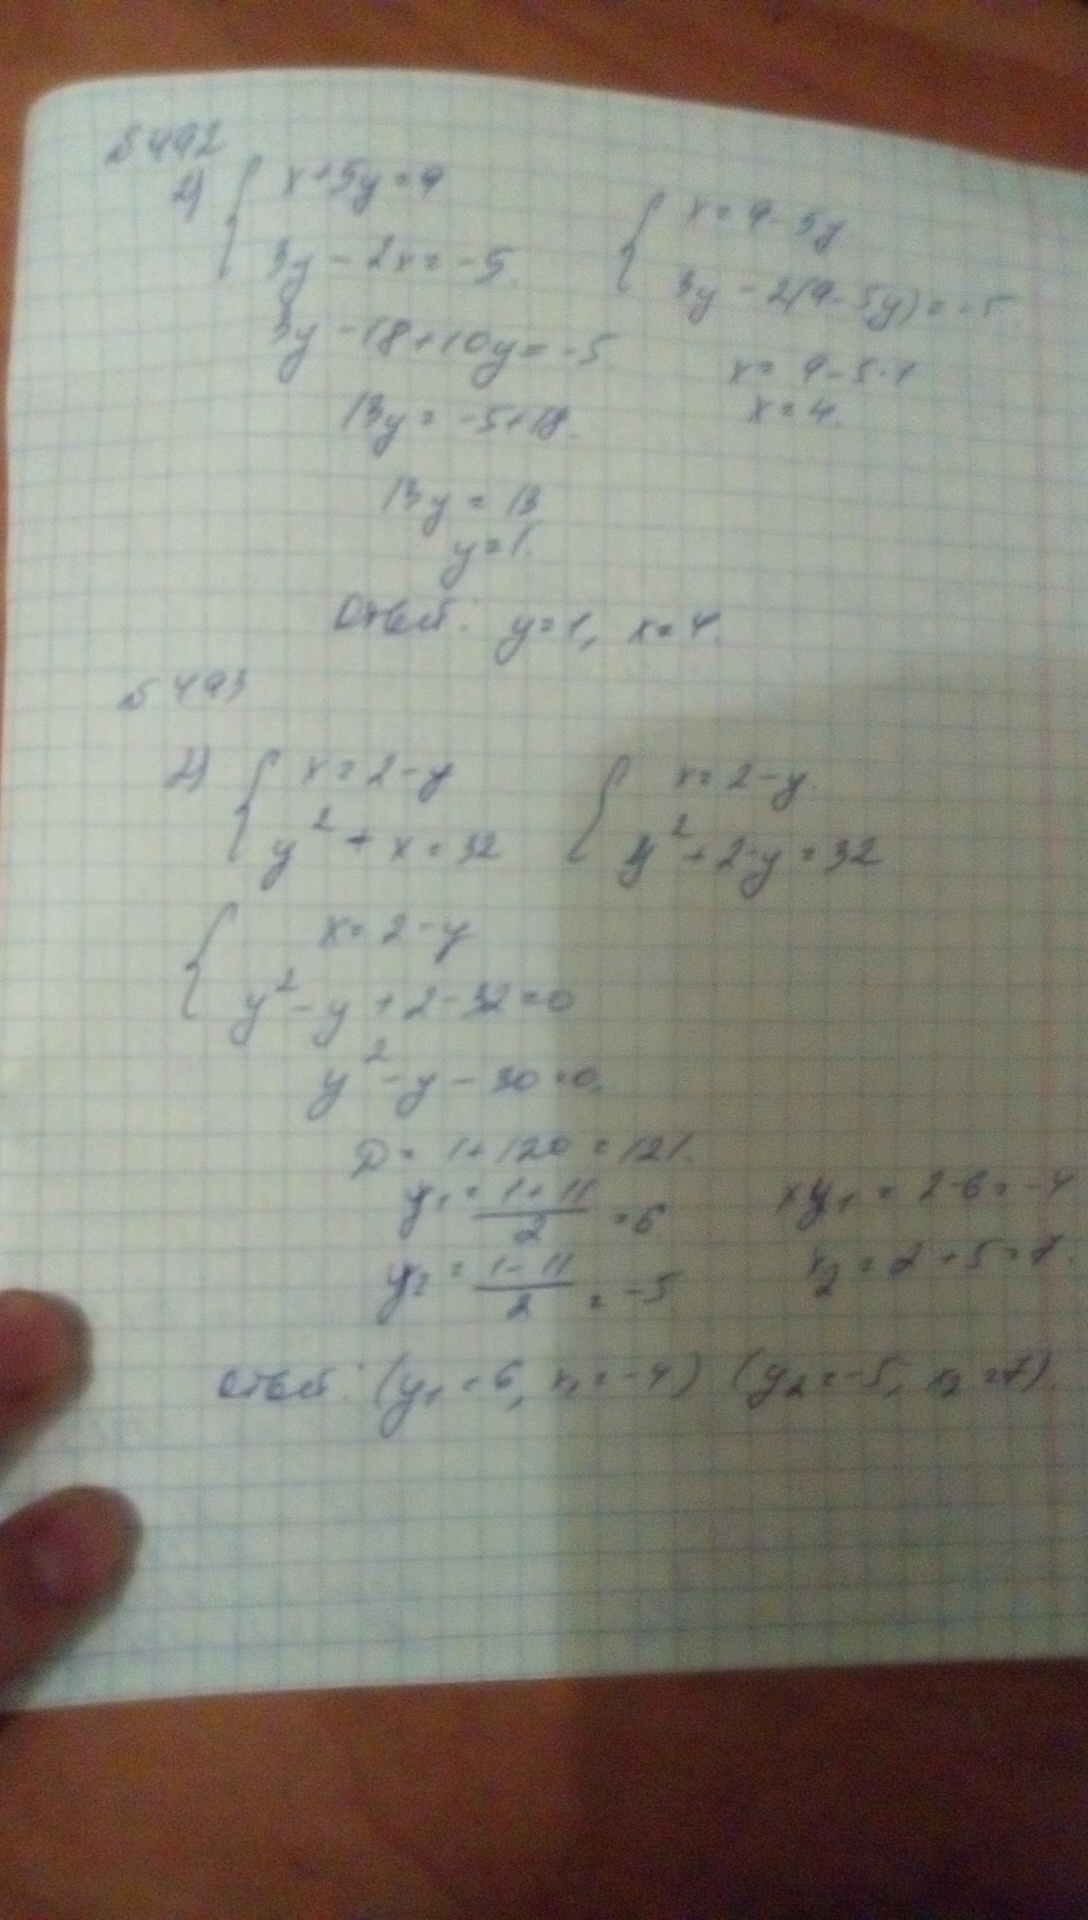 № 492
2) { x+5y=9
3y-2x=-5.
{ x=9-5y
3y-2(9-5y)=-5
3y-18+10y=-5
x=9-5·1
x=4.
13y=-5+18.
13y=13
y=1.
Ответ: y=1, x=4.
№ 493
2) { x=2-y
y²+x=32
{ x=2-y.
y²+2-y=32
{ x=2-y
y²-y+2-32=0
y²-y-30=0.
D=1+120=121.
y₁=(1+11)/2=6
xy₁=2-6=-4
y₂=(1-11)/2=-5
x₂=2+5=7.
Ответ: (y₁=6, x₁=-4) (y₂=-5, x₂=7).